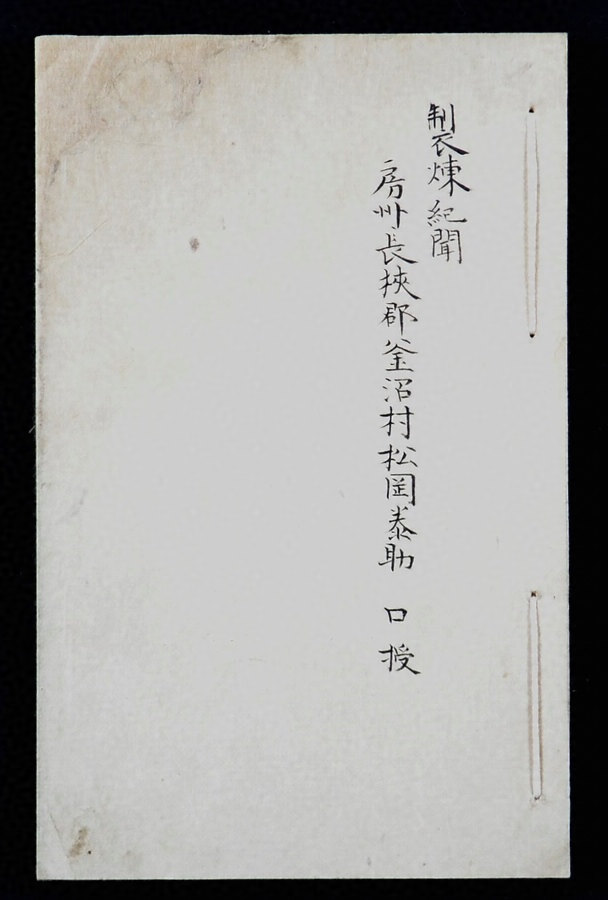 製煉紀聞
房州長挾郡釜沼村松岡泰助 口授